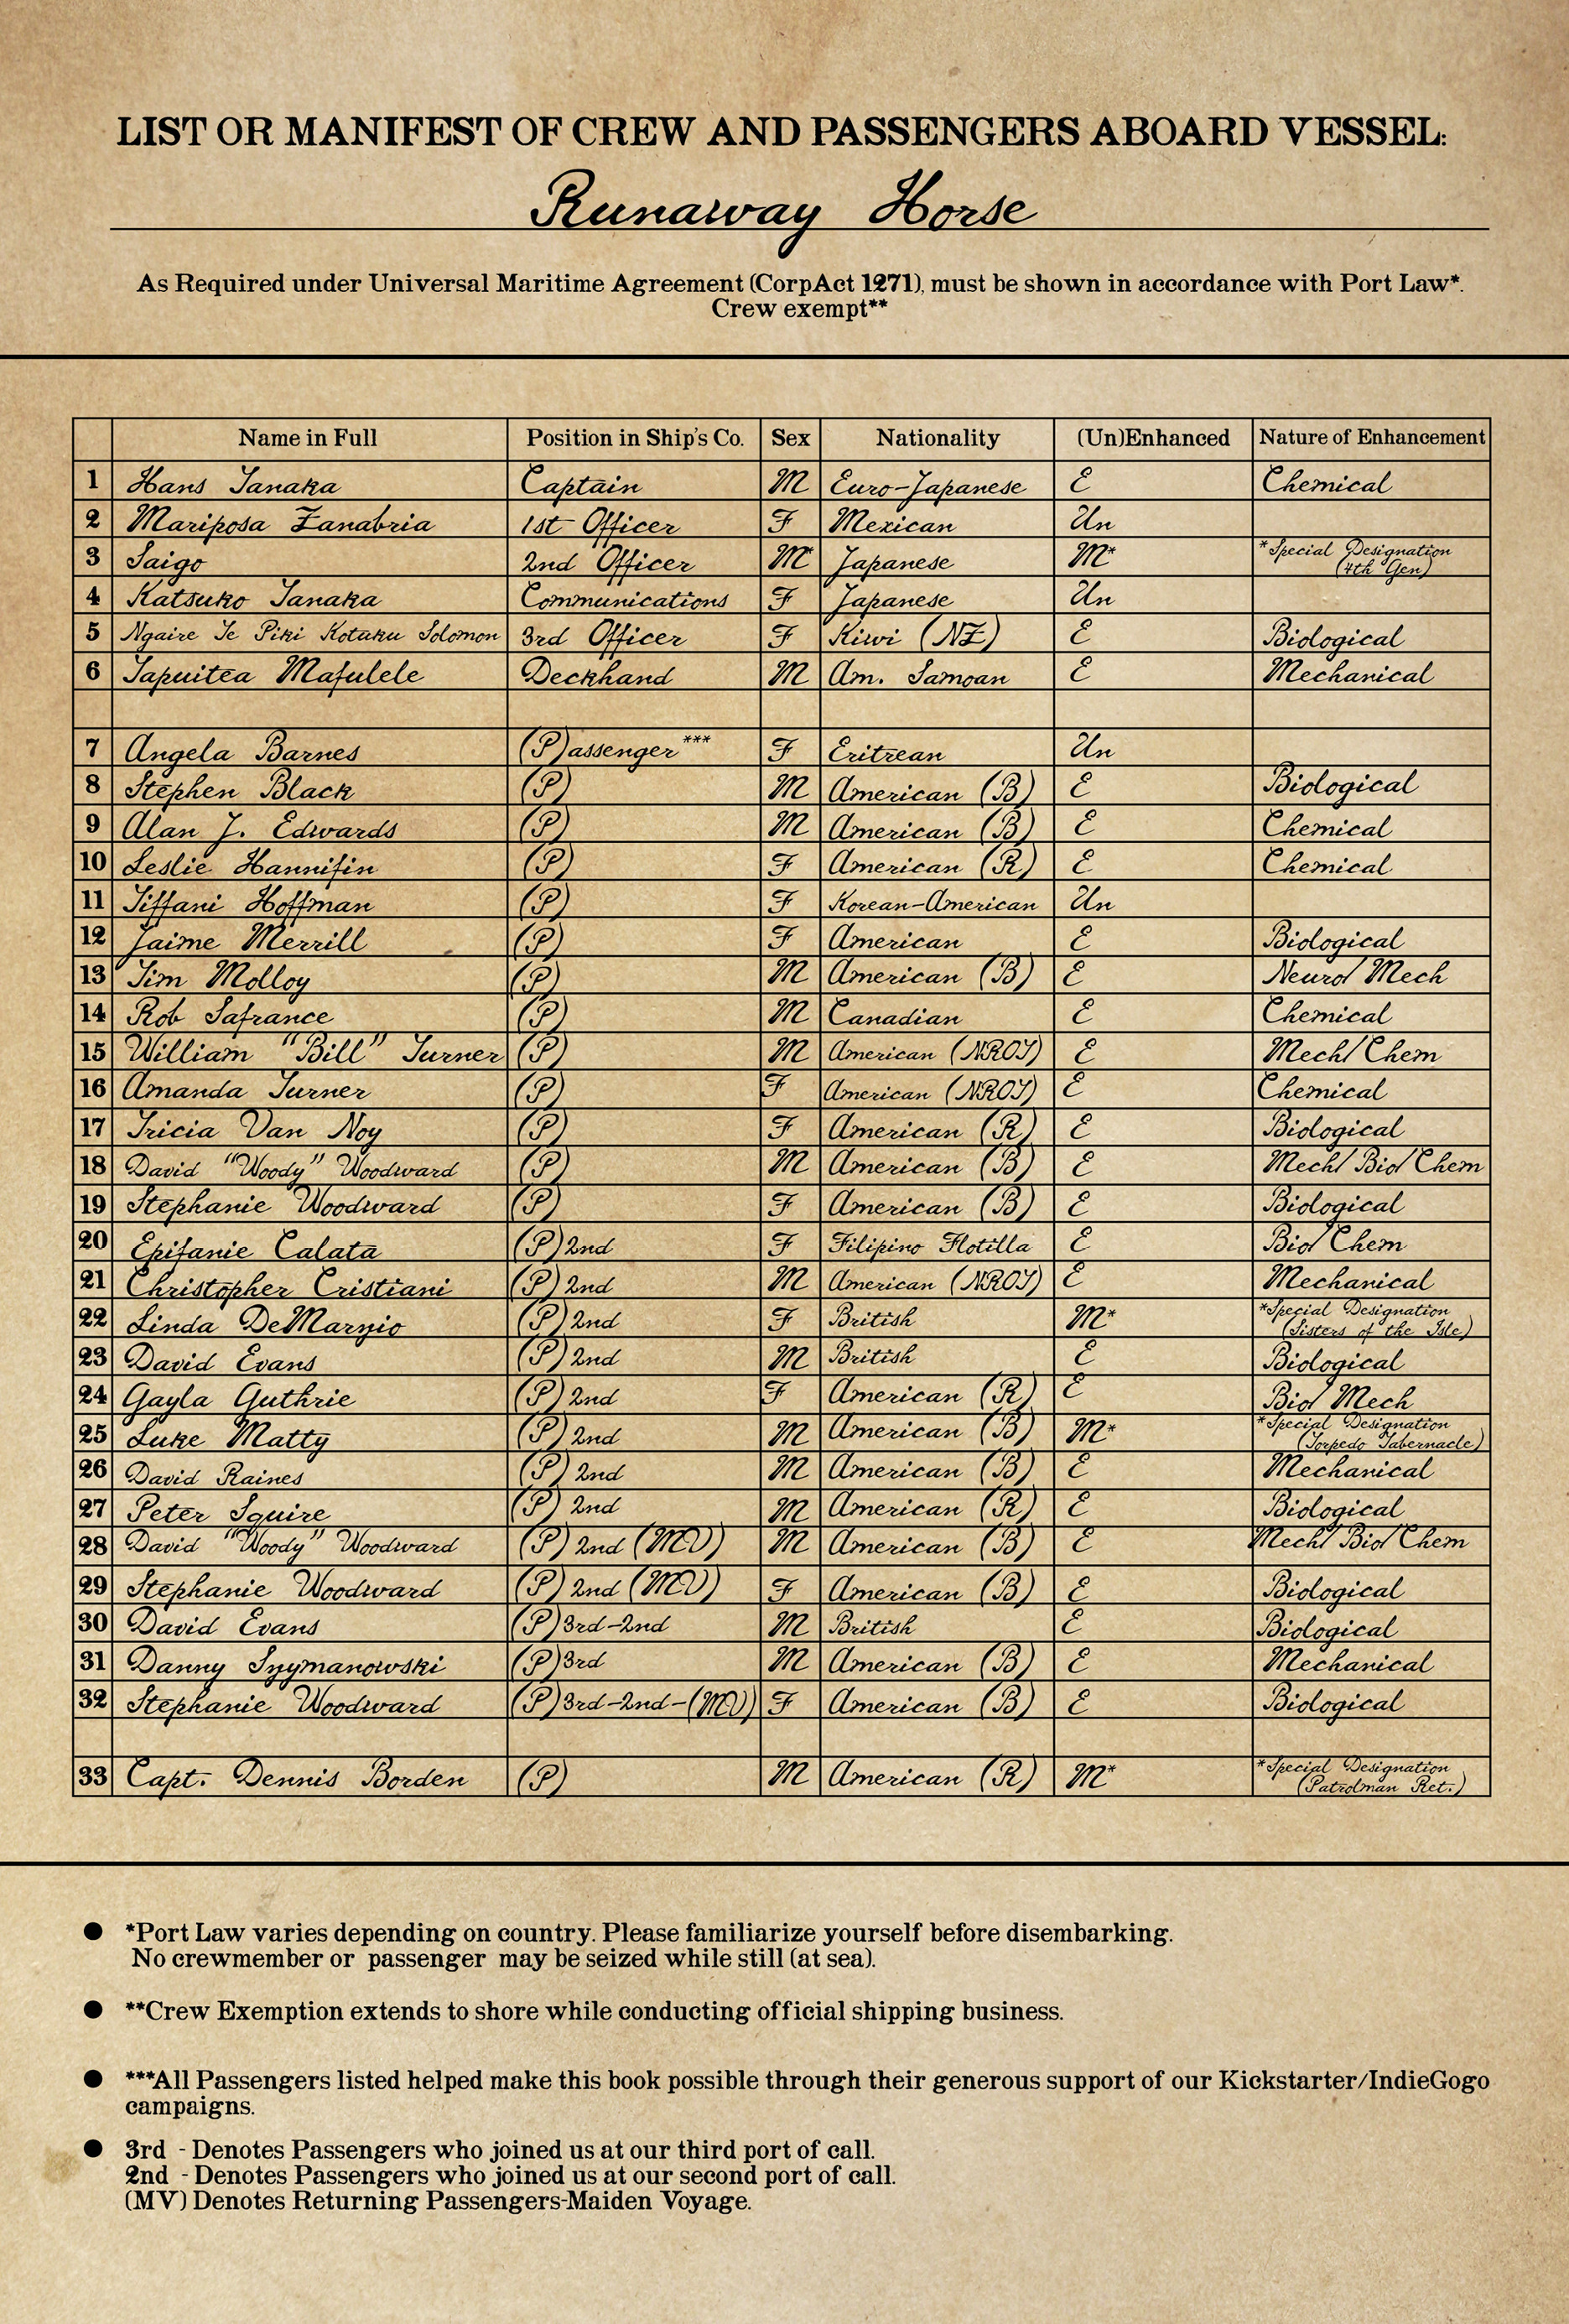 LIST OR MANIFEST OF CREW AND PASSENGERS ABOARD VESSEL:
Runaway Horse
As Required under Universal Maritime Agreement (CorpAct 1271), must be shown in accordance with Port Law*.
Crew exempt**
Name in Full Position in Ship's Co. Sex Nationality (Un)Enhanced Nature of Enhancement
1 Hans Tanaka Captain M Euro-Japanese E Chemical
2 Mariposa Zanabria 1st Officer F Mexican Un
3 Saigo 2nd Officer M* Japanese M* *Special Designation (4th Gen)
4 Katsuko Tanaka Communications F Japanese Un
5 Ngaire Te Piki Kotuku Solomon 3rd Officer F Kiwi (NZ) E Biological
6 Tapuitea Mafulele Deckhand M Am. Samoan E Mechanical
7 Angela Barnes (P)assenger*** F Eritrean Un
8 Stephen Black (P) M American (B) E Biological
9 Alan J. Edwards (P) M American (B) E Chemical
10 Leslie Hannifin (P) F American (R) E Chemical
11 Tiffani Hoffman (P) F Korean-American Un
12 Jaime Merrill (P) F American E Biological
13 Tim Molloy (P) M American (B) E Neuro/ Mech
14 Rob Safrance (P) M Canadian E Chemical
15 William "Bill" Turner (P) M American (NROT) E Mech/ Chem
16 Amanda Turner (P) F American (NROT) E Chemical
17 Tricia Van Noy (P) F American (R) E Biological
18 David "Woody" Woodward (P) M American (B) E Mech/ Bio/ Chem
19 Stephanie Woodward (P) F American (B) E Biological
20 Epifanie Calata (P) 2nd F Filipino Flotilla E Bio/ Chem
21 Christopher Cristiani (P) 2nd M American (NROT) E Mechanical
22 Linda DeMarzio (P) 2nd F British M* *Special Designation (Sisters of the Isle)
23 David Evans (P) 2nd M British E Biological
24 Gayla Guthrie (P) 2nd F American (R) E Bio/ Mech
25 Luke Matty (P) 2nd M American (B) M* *Special Designation (Torpedo Tabernacle)
26 David Raines (P) 2nd M American (B) E Mechanical
27 Peter Squire (P) 2nd M American (R) E Biological
28 David "Woody" Woodward (P) 2nd (MV) M American (B) E Mech/ Bio/ Chem
29 Stephanie Woodward (P) 2nd (MV) F American (B) E Biological
30 David Evans (P) 3rd-2nd M British E Biological
31 Danny Szymanowski (P) 3rd M American (B) E Mechanical
32 Stephanie Woodward (P) 3rd-2nd-(MV) F American (B) E Biological
33 Capt. Dennis Borden (P) M American (R) M* *Special Designation (Patrolman Ret.)
● *Port Law varies depending on country. Please familiarize yourself before disembarking.
No crewmember or passenger may be seized while still (at sea).
● **Crew Exemption extends to shore while conducting official shipping business.
● ***All Passengers listed helped make this book possible through their generous support of our Kickstarter/IndieGogo
campaigns.
● 3rd - Denotes Passengers who joined us at our third port of call.
2nd - Denotes Passengers who joined us at our second port of call.
(MV) Denotes Returning Passengers-Maiden Voyage.